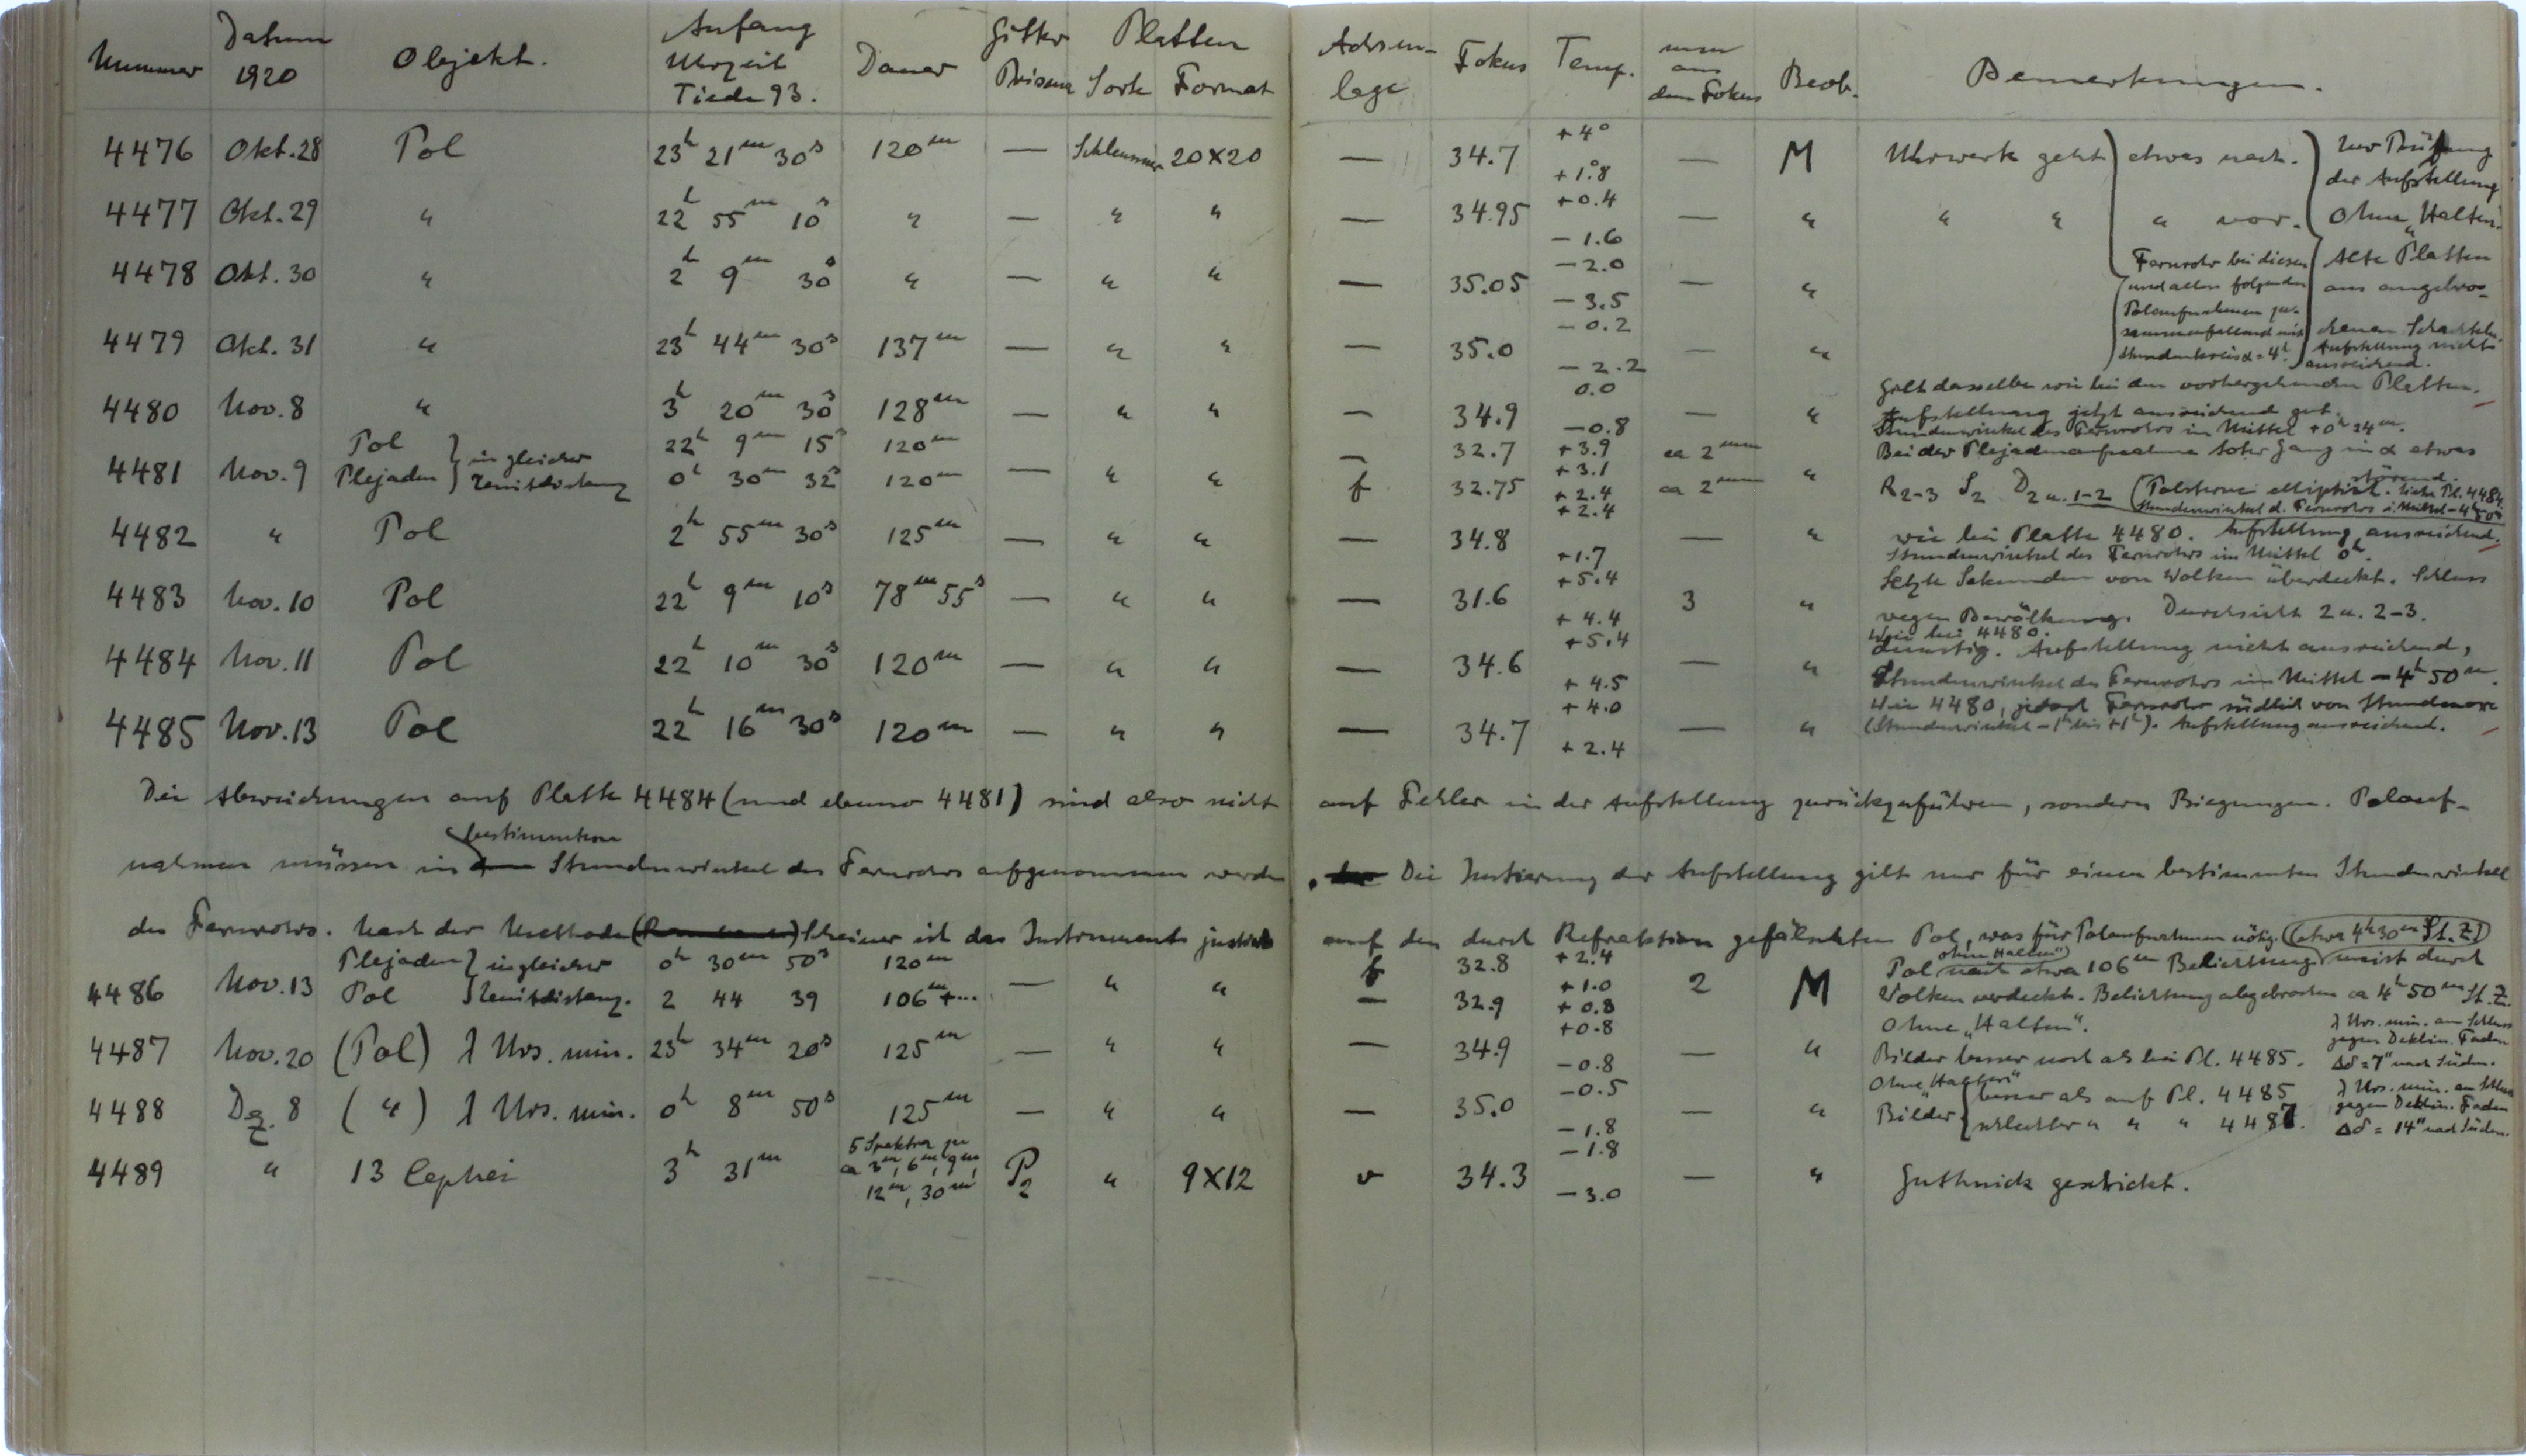 Nummer Datum 1920 Objekt. Anfang Uhrzeit Tiede 93. Dauer Gitter Prisma Platten Sorte Format Achsenlage Fokus Temp. mm aus dem Fokus Beob. Bemerkungen.
4476 Okt. 28 Pol 23h 21m 30s 120m — Schleussner 20x20 — 34.7 +4° +1.°8 — M Uhrwerk geht etwas nach. Zur Prüfung der Aufstellung
4477 Okt. 29 " 22h 55m 10s " — " " — 34.95 +0.4 −1.6 — " " " " vor. ohne „Halten".
4478 Okt. 30 " 2h 9m 30s " — " " — 35.05 −2.0 −3.5 — " Fernrohr bei diesen und allen folgenden Polaufnahmen zusammenfallend mit Stundenkreis α = 4h. Alte Platten aus angebrochenen Schachteln.
4479 Okt. 31 " 23h 44m 30s 137m — " " — 35.0 −0.2 −2.2 — " Aufstellung nicht ausreichend.
4480 Nov. 8 " 3h 20m 30s 128m — " " — 34.9 0.0 −0.8 — " Gilt dasselbe wie bei den vorhergehenden Platten.
Aufstellung jetzt ausreichend gut.
Stundenwinkel des Fernrohrs im Mittel +0h 24m.
4481 Nov. 9 Pol Plejaden } in gleicher Zenitdistanz 22h 9m 15s 120m — " " — 32.7 +3.9 +3.1 ca 2mm " Bei der Plejadenaufnahme toter Gang in α etwas störend.
0h 30m 32s 120m f 32.75 +2.4 +2.4 ca 2mm R2-3 S2 D2 u. 1-2 (Polsterne elliptisch. Siehe Pl. 4484.
Stundenwinkel d. Fernrohrs i. Mittel −4h 50m
4482 " Pol 2h 55m 30s 125m — " " — 34.8 +1.7 — " wie bei Platte 4480. Aufstellung ausreichend.
Stundenwinkel des Fernrohrs im Mittel 0h.
4483 Nov. 10 Pol 22h 9m 10s 78m 55s — " " — 31.6 +5.4 +4.4 3 " Letzte Sekunden von Wolken überdeckt. Schluss
wegen Bewölkung. Durchsicht 2 u. 2-3.
4484 Nov. 11 Pol 22h 10m 30s 120m — " " — 34.6 +5.4 +4.5 — " Wie bei 4480.
dunstig. Aufstellung nicht ausreichend,
Stundenwinkel des Fernrohrs im Mittel −4h 50m.
4485 Nov. 13 Pol 22h 16m 30s 120m — " " — 34.7 +4.0 +2.4 — " Wie 4480, jedoch Fernrohr südlich von Stundenaxe
(Stundenwinkel −1h bis +1h). Aufstellung ausreichend.
Die Abweichungen auf Platte 4484 (und ebenso 4481) sind also nicht auf Fehler in der Aufstellung zurückzuführen, sondern Biegungen. Polauf-
nahmen müssen in bestimmtem Stundenwinkel des Fernrohrs aufgenommen werden. Die Justierung der Aufstellung gilt nur für einen bestimmten Stundenwinkel
des Fernrohrs. Nach der Methode Scheiner ist das Instrument justiert auf den durch Refraktion gefälschten Pol, was für Polaufnahmen nötig. (etwa 4h 30m St. Z)
4486 Nov. 13 Plejaden Pol } in gleicher Zenitdistanz. 0h 30m 50s 120m — " " f 32.8 +2.4 +1.0 2 M Pol nach etwa 106m Belichtung (ohne „Halten") meist durch
2 44 39 106m+... — 32.9 +0.8 Wolken verdeckt. Belichtung abgebrochen ca 4h 50m St. Z.
4487 Nov. 20 (Pol) λ Urs. min. 23h 34m 20s 125m — " " — 34.9 +0.8 −0.8 — " Ohne „Halten".
Bilder besser noch als bei Pl. 4485. λ Urs. min. am Schluss gegen Deklin. Faden Δδ = 7" nach Süden.
4488 Dez. 8 ( " ) λ Urs. min. 0h 8m 50s 125m — " " — 35.0 −0.5 −1.8 — " Ohne „Halten"
Bilder { besser als auf Pl. 4485 schlechter " " " 4487. λ Urs. min. am Schluss gegen Deklin. Faden Δδ = 14" nach Süden.
4489 " 13 Cephei 3h 31m 5 Spektra zu ca 3m, 6m, 9m, 12m, 30m P2 " 9x12 v 34.3 −1.8 −3.0 — " Guthnick geschickt.